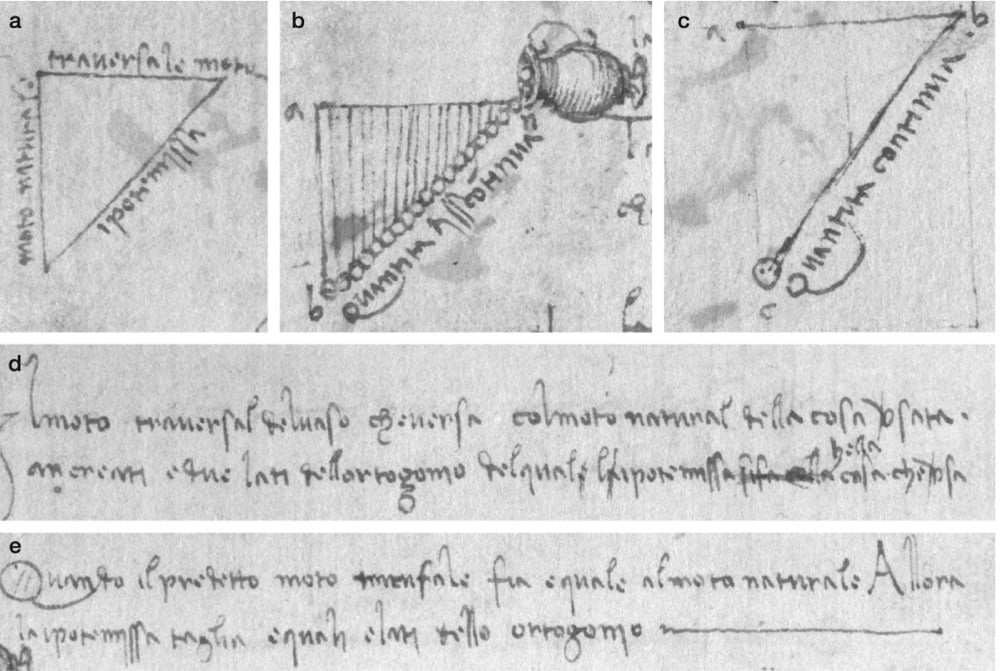 a
traversale moto
moto naturale
ipotenissa
b
a
Quantita discontinua
b
c
a
b
Quantita continua
c
d
Il moto traversal del vaso che versa col moto natural della cosa
an creati e due lati dell ortogonio del quale l ipotenissa
hella
cosa
e
Quando il predetto moto fia equale al moto naturale Allora
la ipotenissa taglia equali e lati dello ortogonio